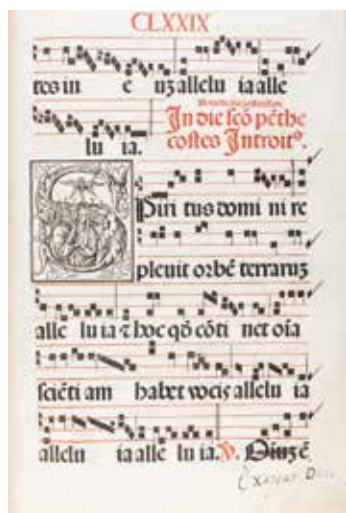 CLXXIX
tes in e uʒ allelu ia alle
lu ia.
In die scō pēthe
costes Introitꝰ.
Spiri tus domi ni re
pleuit orbē terraruʒ
alle lu ia ⁊ hoc qd̄ cōti net oīa
sciēti am habet vocis allelu ia
allelu ia alle lu ia. ℣.
Exurgat Deus